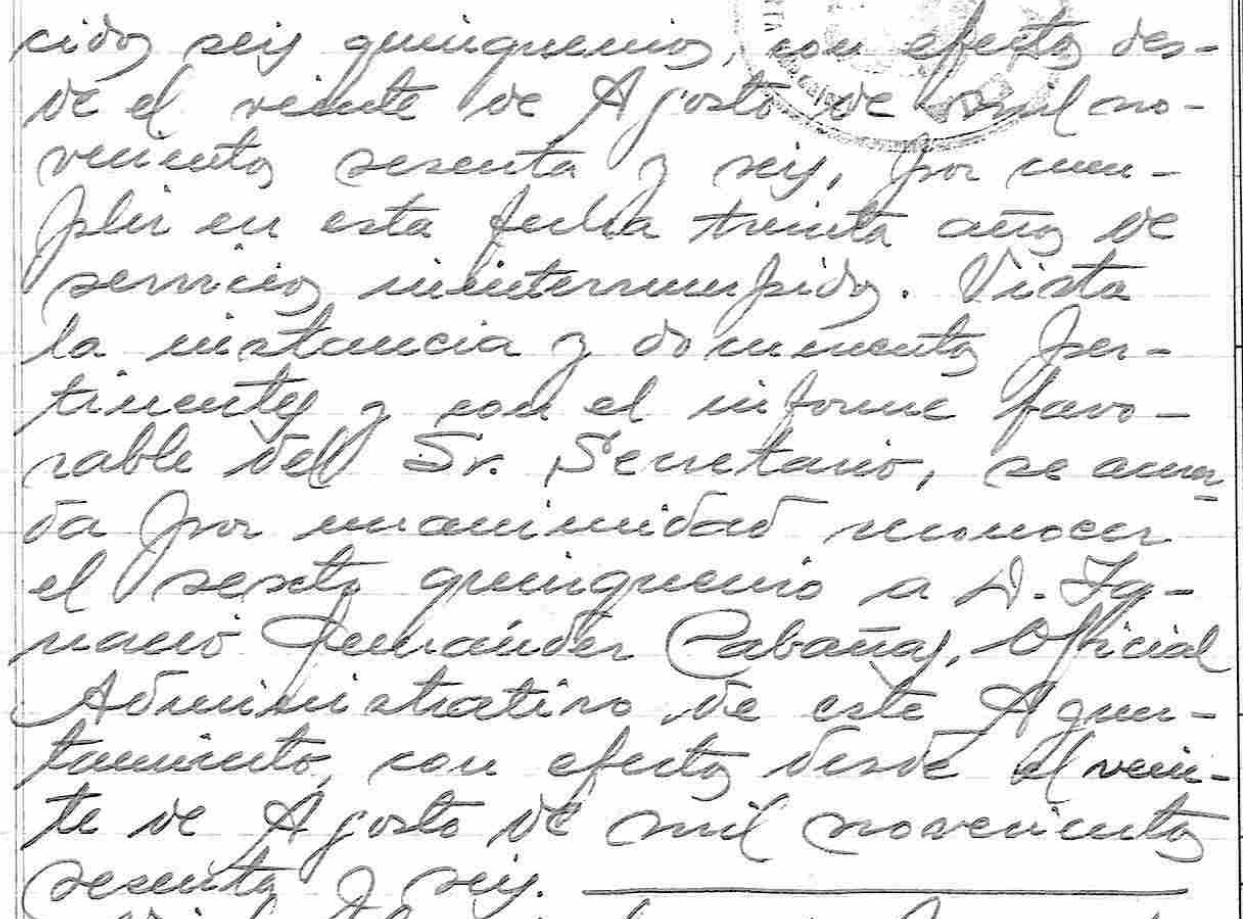 cidos seis quinquenios, con efectos des-
de el veinte de Agosto de mil no-
vecientos sesenta y seis, por cum-
plir en esta fecha treinta años de
servicios ininterrumpidos. Vista
la instancia y documentos per-
tinentes y con el informe favo-
rable del Sr. Secretario, se acuer-
da por unanimidad reconocer
el sexto quinquenio a D. Ig-
nacio Fernández Cabañas, Oficial
Administrativo de este Ayun-
tamiento, con efectos desde el vein-
te de Agosto de mil novecientos
sesenta y seis.